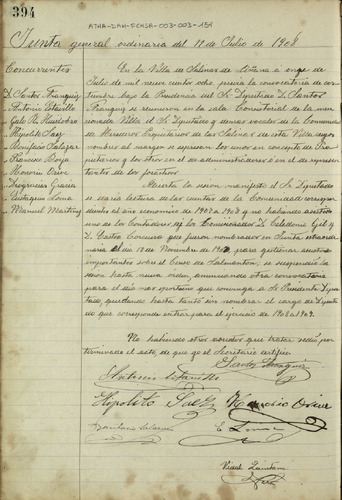 394
ATHA-DAH-FCHSA-003-003-159
Junta general ordinaria del 11 de Julio de 1908
Concurrentes
D. Santos Franquiz
Antonio
Galo R.
Hipolito Saez
Bonifacio Salazar
Francisco Borja
Honorio
Deogracias Gracia
Eustaquio Loma
Manuel Martinez
En la Villa de Salinas de Añana a once de
Julio de mil nueve cientos ocho previa la convocatoria de cos-
tumbre bajo la Presidencia del Sr Diputado D. Santos
Franquiz se reunieron en la sala Consistorial de la men-
cionada Villa el Sr Diputado y demas vocales de la Comunidad
de Herederos Propietarios de las Salinas de esta Villa cuyos
nombres al margen se expresan los unos en concepto de Pro-
pietarios y los otros en el de administradores ó en el de represen-
tantes de los forasteros
Abierta la sesion manifestó el Sr Diputado
se daria lectura de las cuentas de la Comunidad correspon-
dientes al año economico de 1907 a 1908 y no habiendo asistido
uno de los Contadores ni los Comisionados D. Celedonio Gil y
D. Castor que fueron nombrados en Junta extraordi-
naria el dia 17 de Noviembre de 1907, para gestionar asuntos
importantes sobre el Censo de Salmanton, se suspendió la
sesion hasta nueva orden, anunciando otra convocatoria
para el dia mas oportuno que convenga a Sr Presidente Dipu-
tado, quedando hasta tanto sin nombrar el cargo de Diputa-
do que corresponde entrar para el ejercicio de 1908 a 1909.
No habiendo otros asuntos que tratar se dió por
terminado el acto, de que yo el Secretario certifico
Santos Franquiz
Antonio
Hipolito Saez Honorio
Bonifacio Salazar E Loma